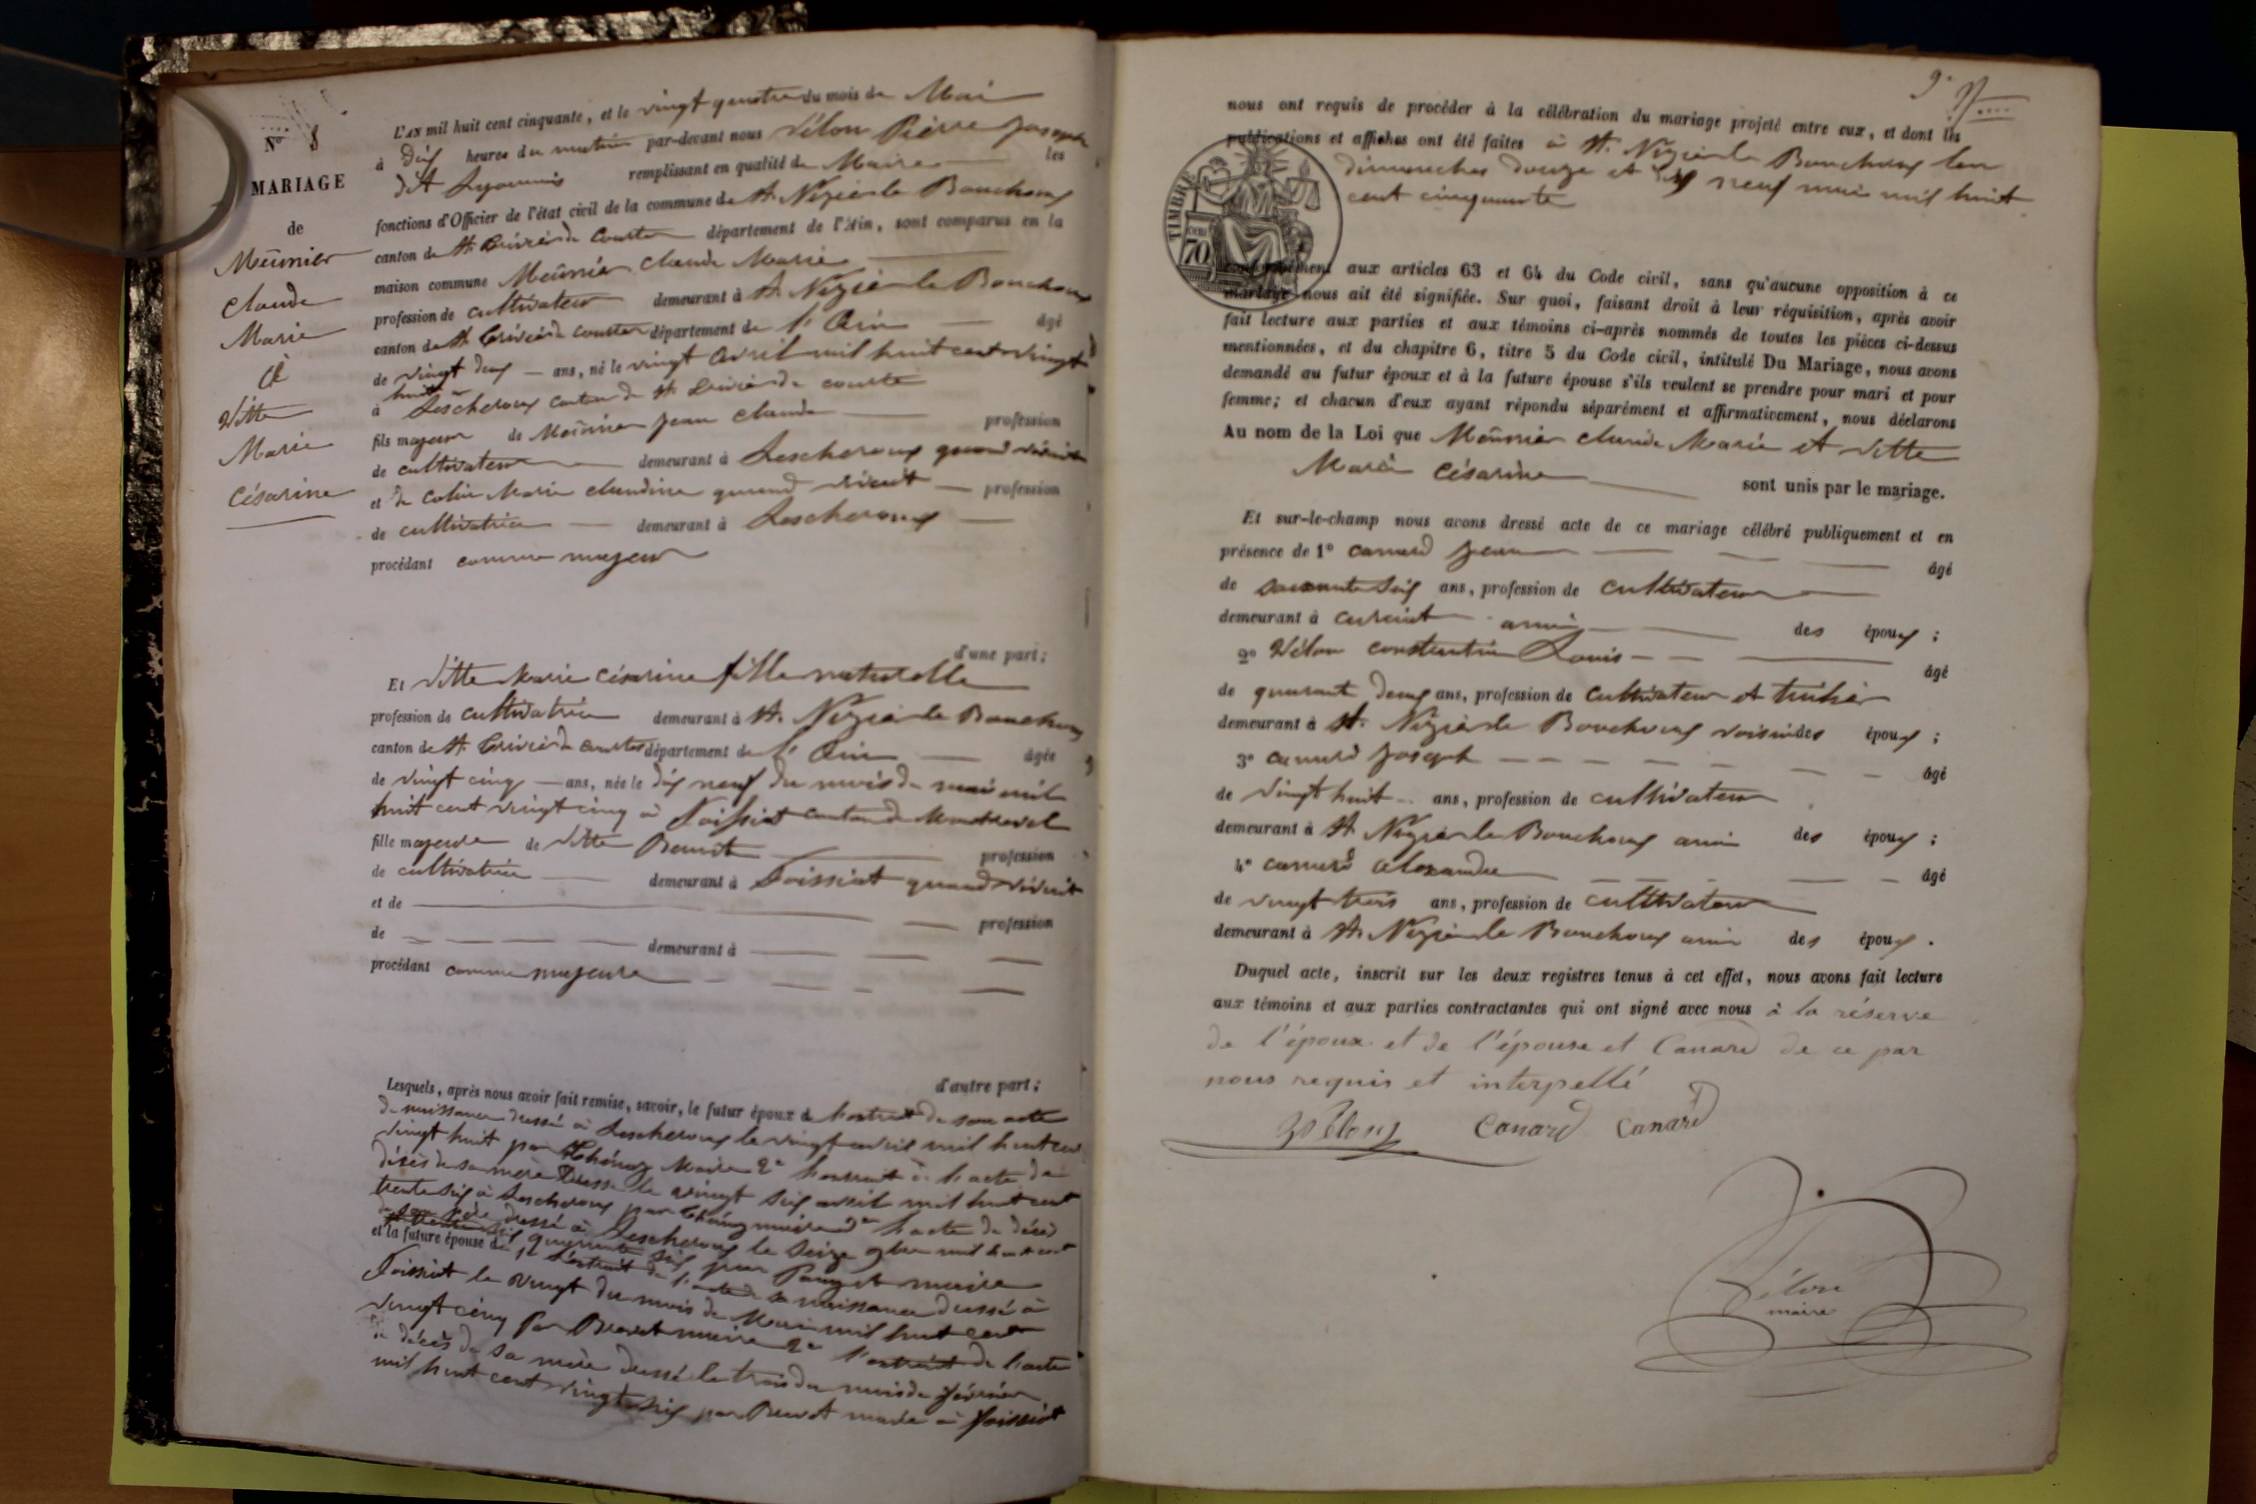 N° 8
MARIAGE
de
Meûnier
Claude
Marie
et
Vitte
Marie
Césarine
L'AN mil huit cent cinquante, et le vingt quatre du mois de Mai
à dix heures du matin par-devant nous Vélon Pierre Joseph
dit Lyonnais remplissant en qualité de Maire les
fonctions d'Officier de l'état civil de la commune de St Nizier le Bouchoux
canton de St Trivier de Courtes département de l'Ain, sont comparus en la
maison commune Meûnier Claude Marie
profession de cultivateur demeurant à St Nizier le Bouchoux
canton de St Trivier de Courtes département de l'Ain âgé
de vingt deux ans, né le vingt avril mil huit cent vingt
huit
à Lescheroux canton de St Trivier de Courtes
fils majeur de Meûnier Jean Claude profession
de cultivateur demeurant à Lescheroux quand vivait
et de Colin Marie Claudine quand vivait profession
de cultivatrice demeurant à Lescheroux
procédant comme majeur
d'une part;
Et Vitte Marie Césarine fille naturelle
profession de cultivatrice demeurant à St. Nizier le Bouchoux
canton de St Trivier de Courtes département de l'Ain âgée
de vingt cinq ans, née le dix neuf du mois de mai mil
huit cent vingt cinq à Foissiat canton de Montrevel
fille majeure de Vitte Benoite profession
de cultivatrice demeurant à Foissiat quand vivait
et de profession
de demeurant à
procédant comme majeure
d'autre part;
Lesquels, après nous avoir fait remise, savoir, le futur époux de l'extrait de son acte
de naissance dressé à Lescheroux le vingt avril mil huit cent
vingt huit par Maire 2° l'extrait de l'acte de
décès de sa mère dressé le vingt six avril mil huit cent
trente six à Lescheroux par maire 3° l'acte de décès
de son père dressé à Lescheroux le seize 9bre mil huit cent
quarante six par maire
et la future épouse de 1° l'extrait de l'acte de sa naissance dressé à
Foissiat le vingt du mois de Mai mil huit cent
vingt cinq par maire 2° l'extrait de l'acte
de décès de sa mère dressé le trois du mois de février
mil huit cent vingt six par maire à Foissiat
9.
nous ont requis de procéder à la célébration du mariage projeté entre eux, et dont les
publications et affiches ont été faites à St. Nizier le Bouchoux les
dimanches douze et dix neuf mai mil huit
cent cinquante
TIMBRE
70
conformément aux articles 63 et 64 du Code civil, sans qu'aucune opposition à ce
mariage nous ait été signifiée. Sur quoi, faisant droit à leur réquisition, après avoir
fait lecture aux parties et aux témoins ci-après nommés de toutes les pièces ci-dessus
mentionnées, et du chapitre 6, titre 5 du Code civil, intitulé Du Mariage, nous avons
demandé au futur époux et à la future épouse s'ils veulent se prendre pour mari et pour
femme; et chacun d'eux ayant répondu séparément et affirmativement, nous déclarons
Au nom de la Loi que Meûnier Claude Marie et Vitte
Marie Césarine sont unis par le mariage.
Et sur-le-champ nous avons dressé acte de ce mariage célébré publiquement et en
présence de 1° Canard Jean âgé
de soixante six ans, profession de cultivateur
demeurant à Curciat ami des époux;
2° Vélon Constantin Louis âgé
de quarante deux ans, profession de cultivateur et
demeurant à St. Nizier le Bouchoux voisin des époux;
3° Canard Joseph âgé
de vingt huit ans, profession de cultivateur
demeurant à St Nizier le Bouchoux ami des époux;
4° Canard Alexandre âgé
de vingt trois ans, profession de cultivateur
demeurant à St Nizier le Bouchoux ami des époux.
Duquel acte, inscrit sur les deux registres tenus à cet effet, nous avons fait lecture
aux témoins et aux parties contractantes qui ont signé avec nous à la réserve
de l'époux et de l'épouse et Canard de ce par
nous requis et interpellé
Canard Canard
Vélon
maire